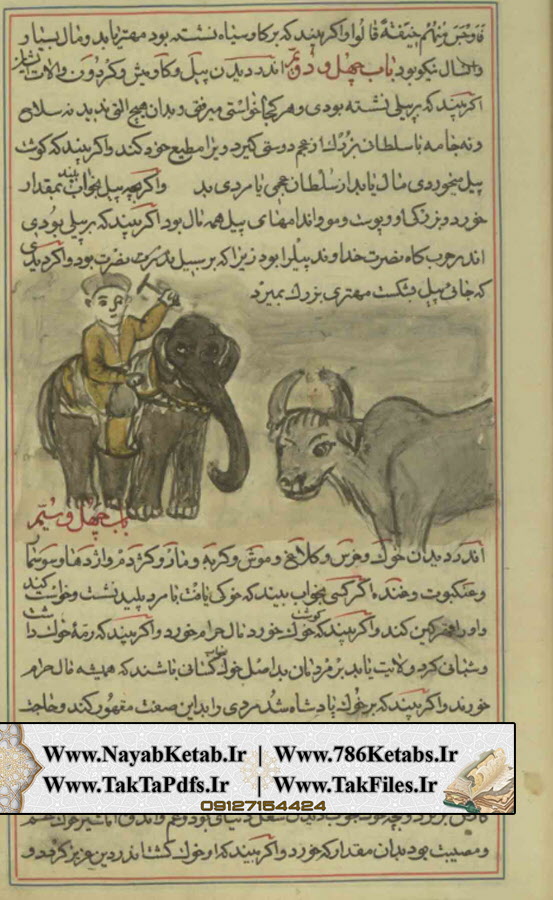 فاوجس منهم خیفة قالوا واگر بیند که بر گاو سیاه نشسته بود مهتر یابد و مال بسیار
و آن سال نیکو بود باب چهل و دویم اندر دیدن پیل و گاومیش و گردون و ولایت
اگر بیند که بر پیلی نشسته بودی و هر کجا خواستی میرفتی و بدان هیچ التی ندید نه سلاح
و نه جامه با سلطان بزرک از عجم دوستی گیرد و ویرا مطیع خود کند و اگر بیند که گوشت
پیل میخوردی مال یابد از سلطان عجمی یا مردی بد واگر بچه پیل بخواب بیند بمقدار
خوردو بزرکی او و پوست و مو و اندامهای پیل همه مال بود اگر بیند که بر پیلی بودی
اندر حرب گاه نصرت خداوند پیل را بود زیرا که بر سبیل نصرت بود و اگر دیدی
که جائی پیل بشکست مهتری بزرک بمیرد
باب چهل و سیم
اندر دیدن خوک و خرس و کلاغ و موش و گربه و مار و کژدم و اژدها و سوسمار
و عنکبوت و اگر کسی بخواب بیند که خوکی یافت با مرد پلید نشست و خواست کند
و او را کند و اگر بیند که خوک گوشت خورد مال حرام خورد و اگر بیند که رمهٔ خوک داشت
و شبانی کرد ولایت یابد بر مردمان بد اصل کسانی باشند که همیشه مال حرام
خورند و اگر بیند که بر خوک پادشاه شد مردی را بداین صفت مقهور کند و حاجت
Www.NayabKetab.Ir | Www.786Ketabs.Ir
Www.TakTaPdfs.Ir | Www.TakFiles.Ir
09127154424
و مصیبت بود بدان مقدار که خورد و اگر بیند که او خوک گشت اندر دین عزیز گردد و